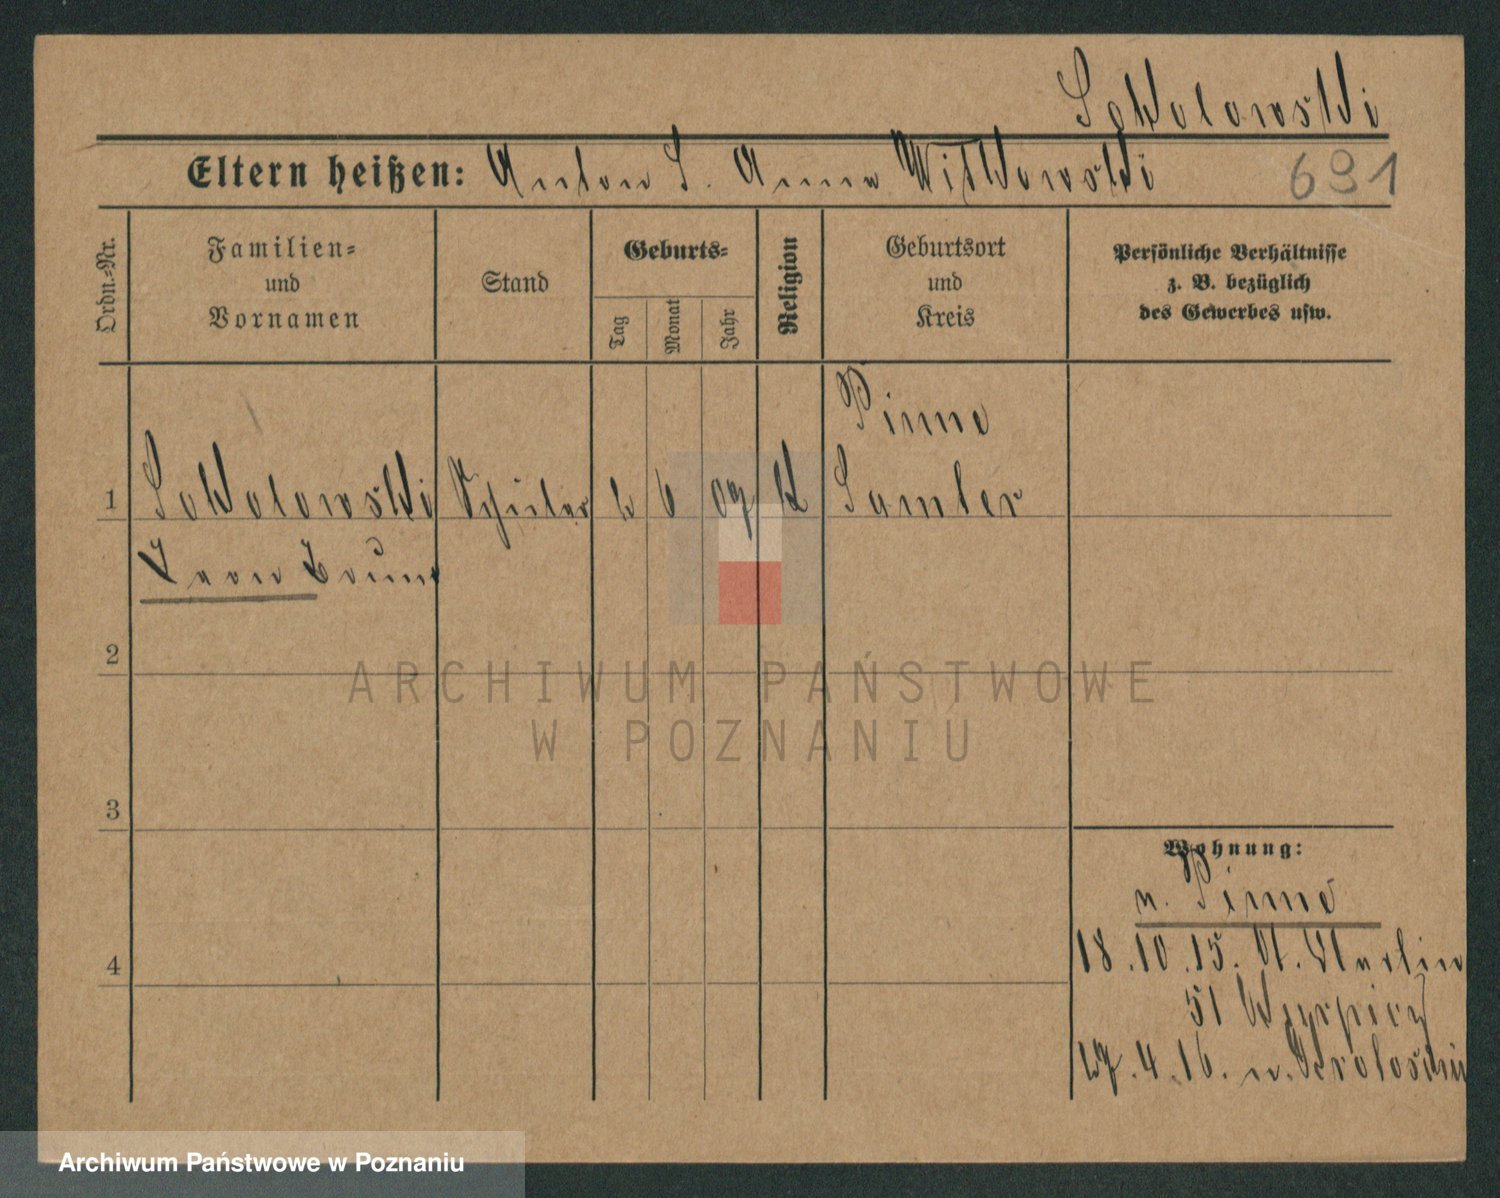 Sokolowski
Eltern heißen: Anton S. Anna Witkowski 691
Ordn.=Nr.
Familien=
und
Vornamen
Stand
Geburts=
Tag
Monat
Jahr
Religion
Geburtsort
und
Kreis
Persönliche Verhältnisse
z. B. bezüglich
des Gewerbes usw.
Pinne
1 Sokolowski Schüler 2 6 07 k Samter
Leon Bruno
2
3
4
Wohnung:
n. Pinne
18.10.15. Berlin
51
27.4.16. n.
ARCHIWUM PAŃSTWOWE
W POZNANIU
Archiwum Państwowe w Poznaniu